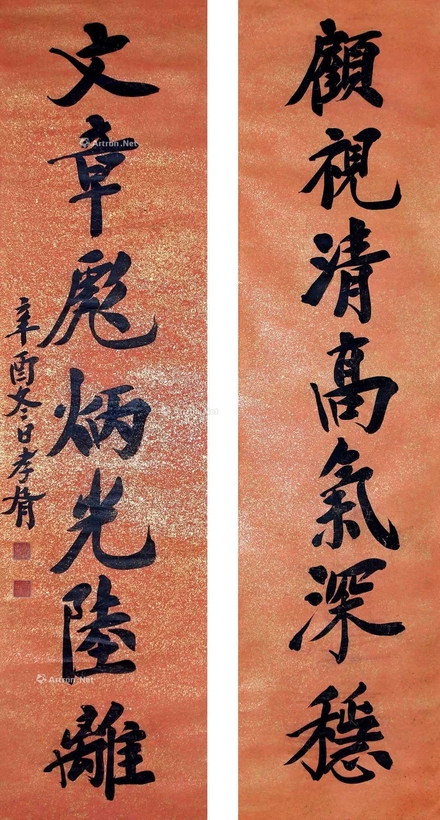 顧視清高氣深穩
文章彪炳光陸離
辛酉冬日孝胥
Artron.Net
Artron.Net